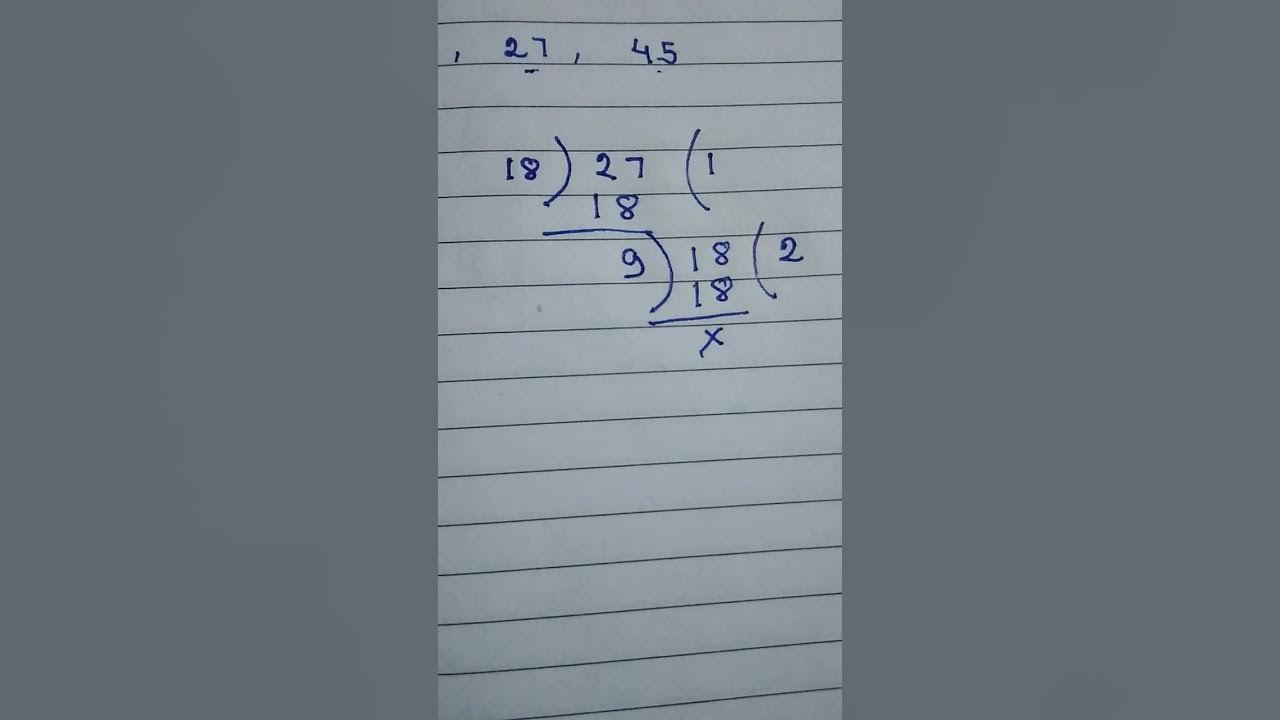 , 27, 45
18) 27 (1
18
9) 18 (2
18
x